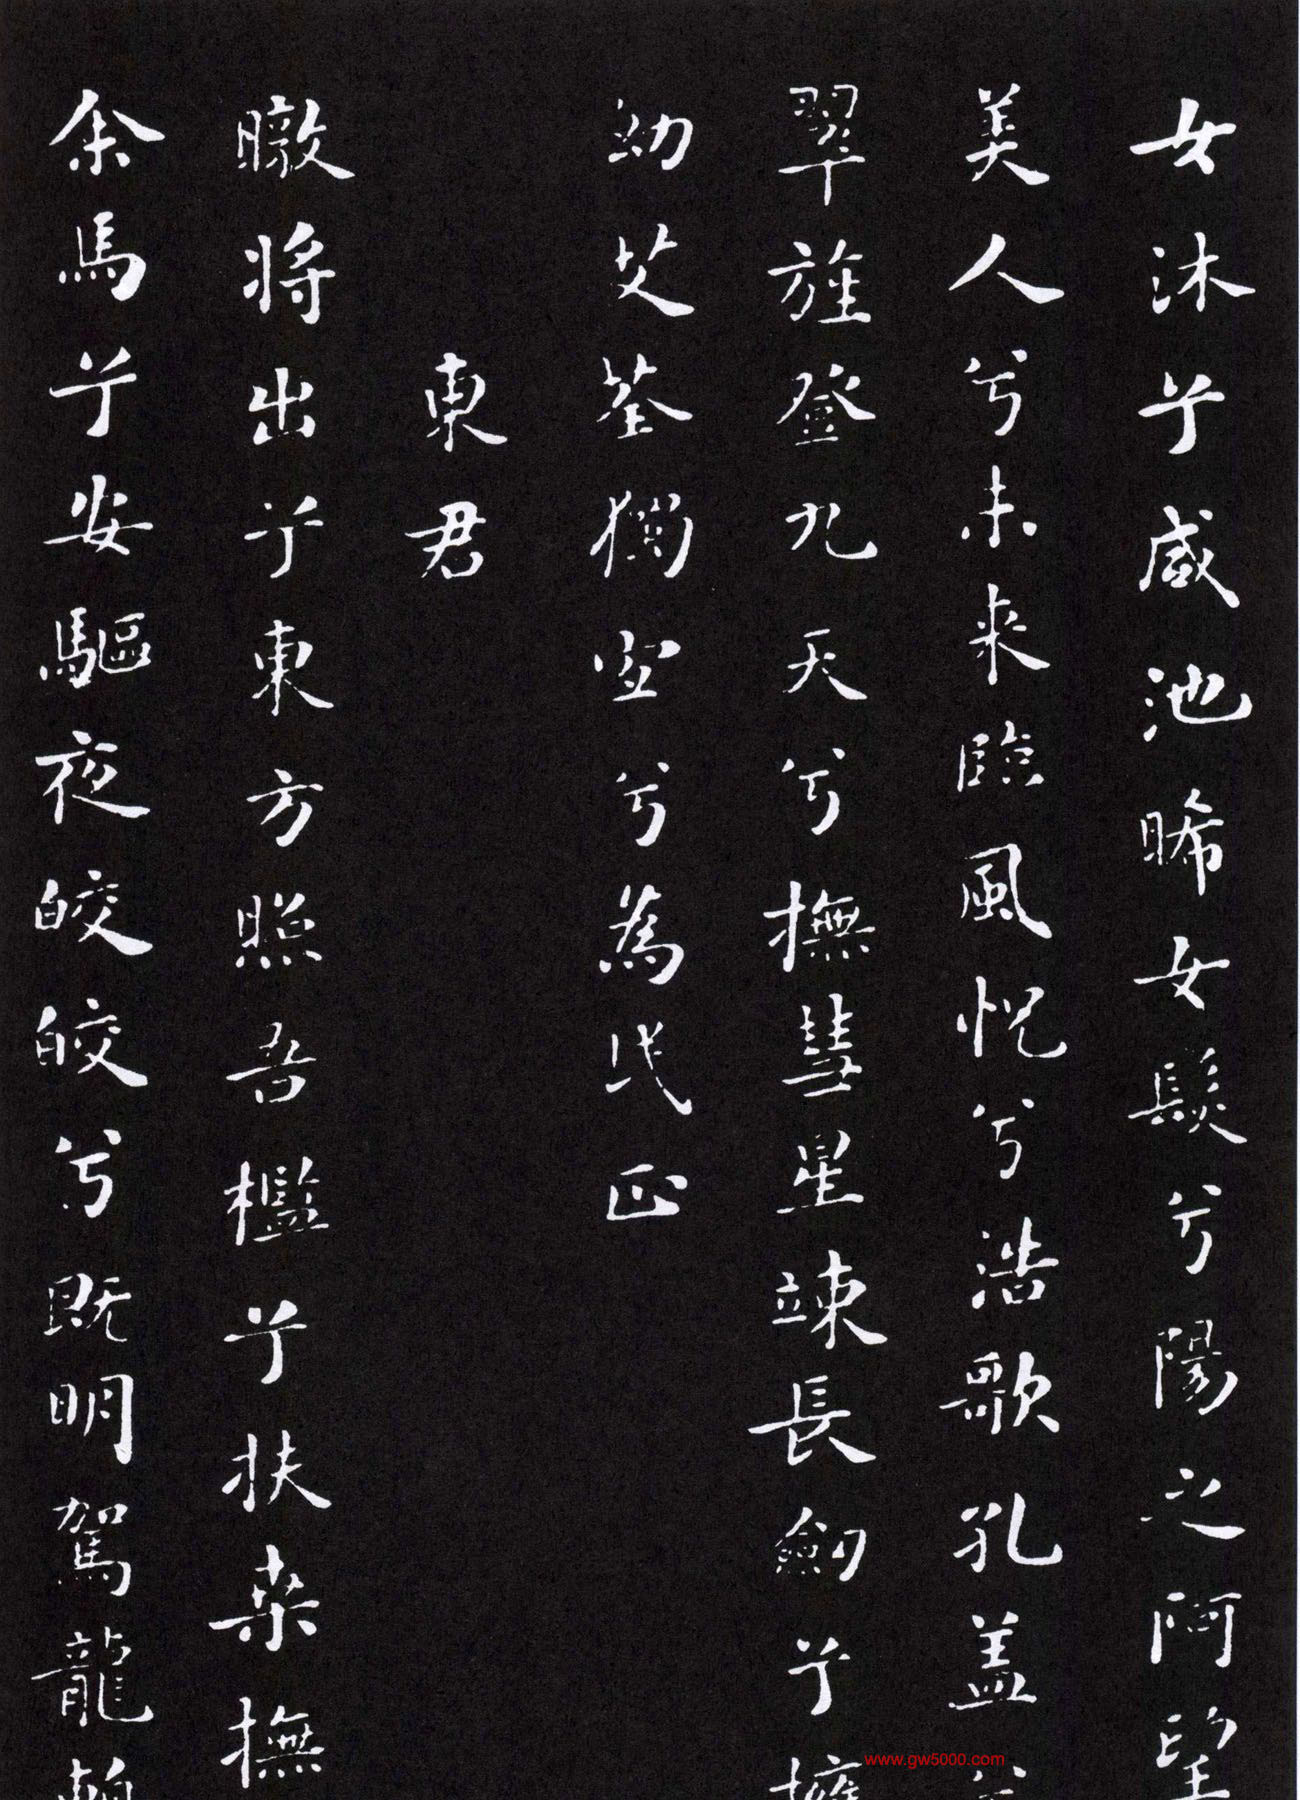 女沐兮咸池晞女髮兮陽之阿望
美人兮未來臨風怳兮浩歌孔盖兮
翠旌登九天兮撫彗星竦長劒兮擁
幼艾荃獨宜兮為民正
東君
暾将出兮東方照吾檻兮扶桒撫
余馬兮安驅夜皎皎兮既明駕龍輈
www.gw5000.com